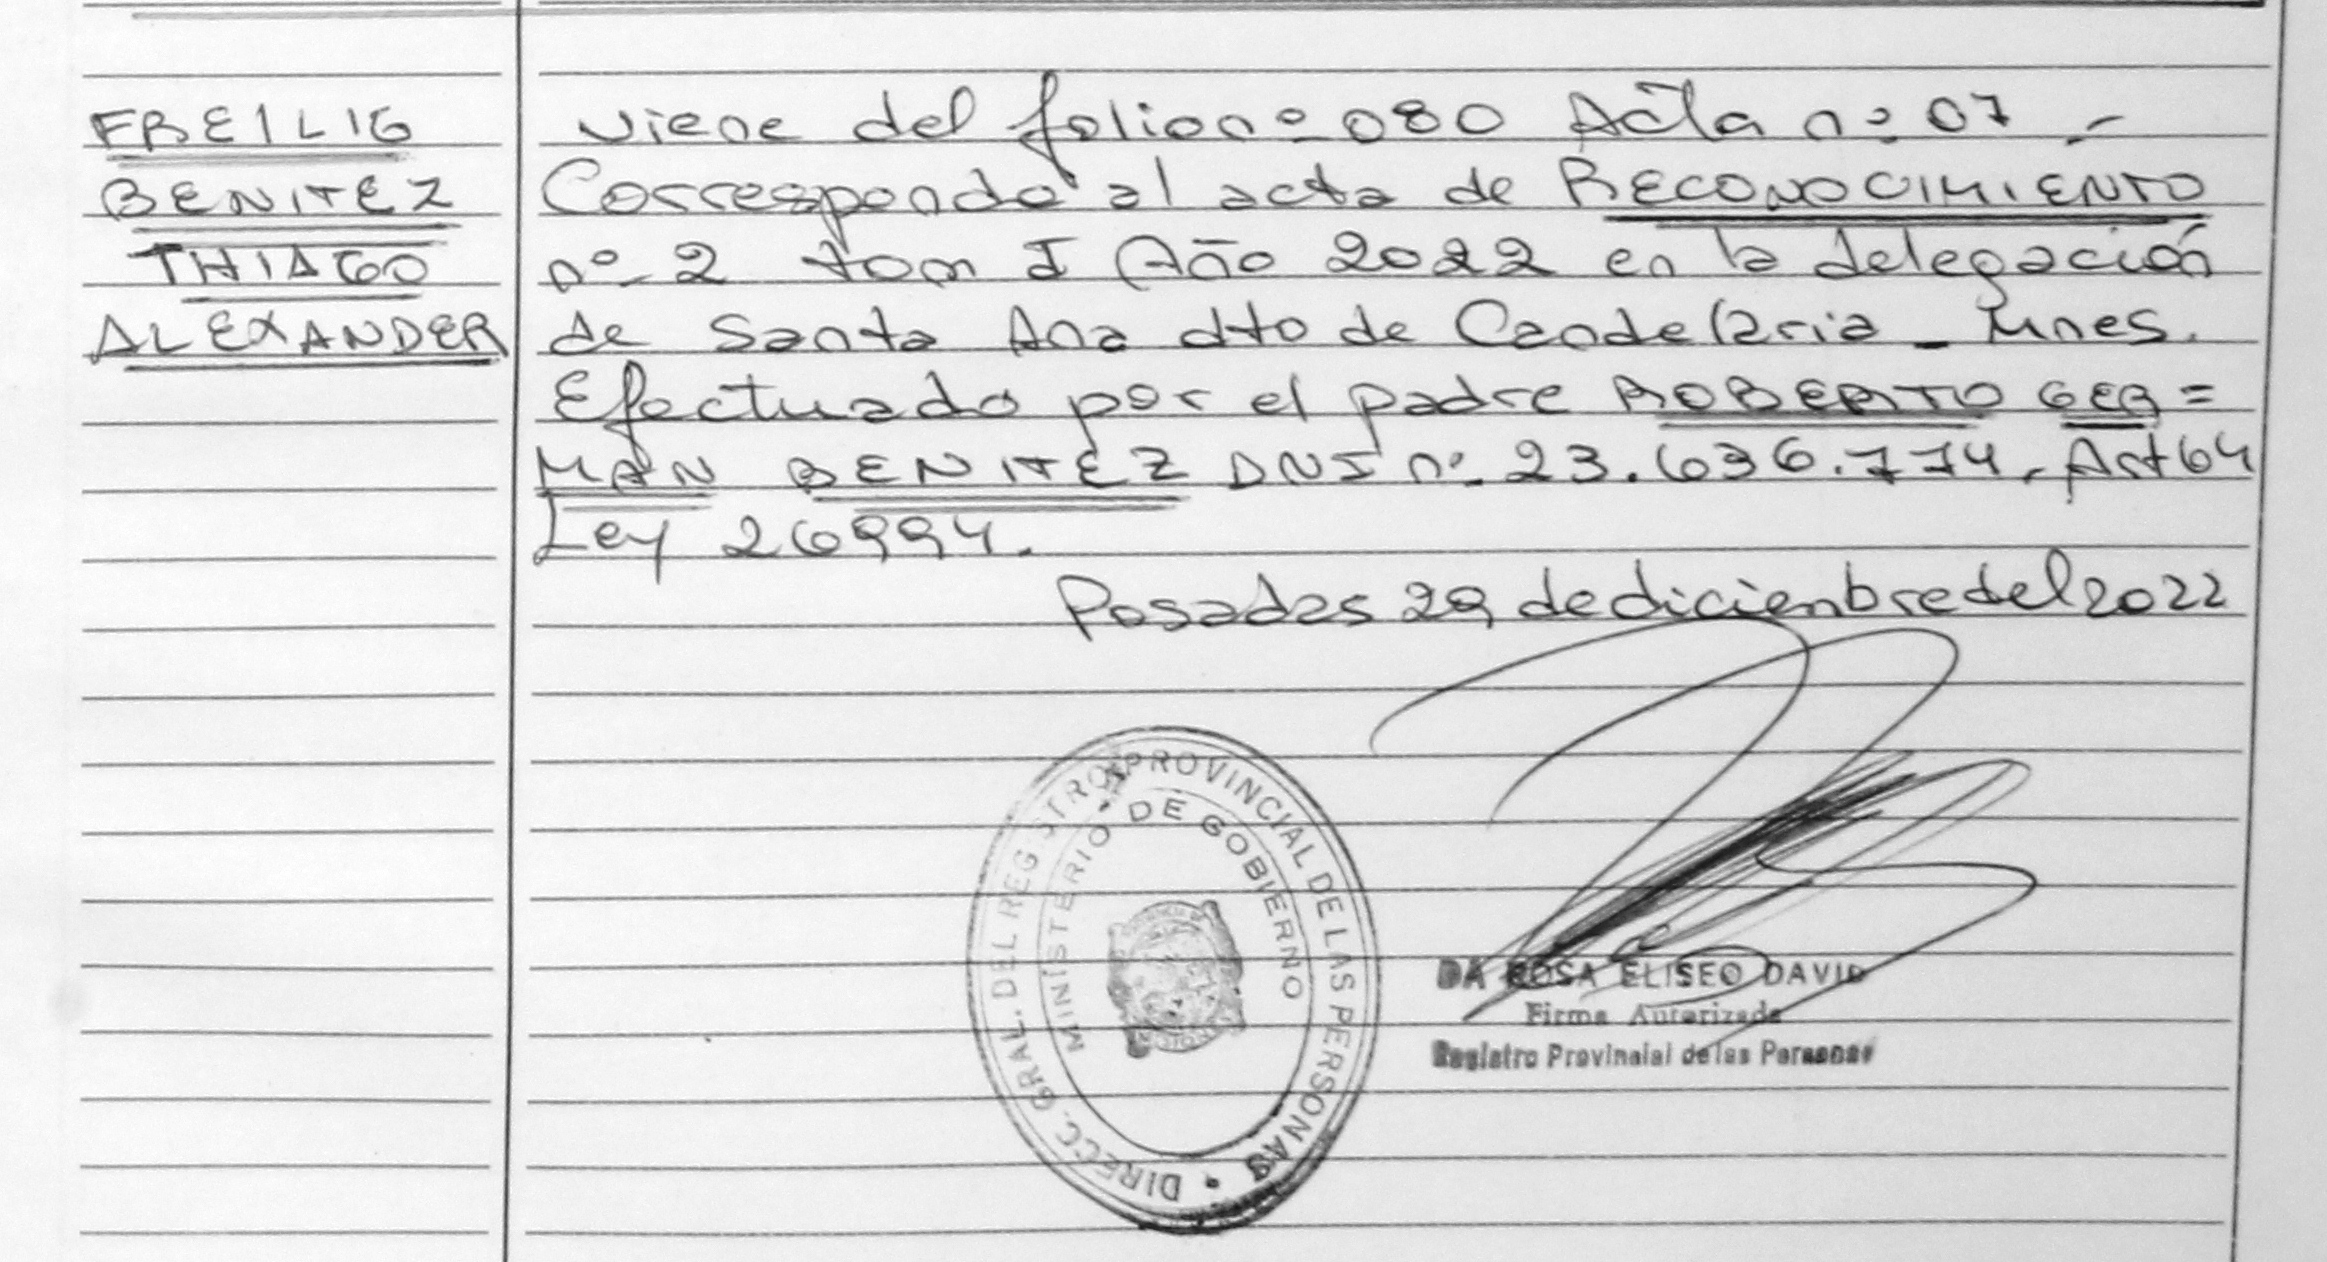 FREILIG
BENITEZ
THIAGO
ALEXANDER
viene del folio nº 080 Acta nº 07 -
Corresponde al acta de RECONOCIMIENTO
nº 2 tom I Año 2022 en la delegación
de Santa Ana dto de Candelaria - Mnes.
Efectuado por el padre ROBERTO GER=
MAN BENITEZ DNI nº 23.636.774, Art 64
Ley 26994.
Posadas 29 de dicienbre del 2022
DIRECC. GRAL. DEL REGISTRO PROVINCIAL DE LAS PERSONAS
MINISTERIO DE GOBIERNO
DA ROSA ELISEO DAVID
Firma Autorizada
Registro Provincial de las Personas